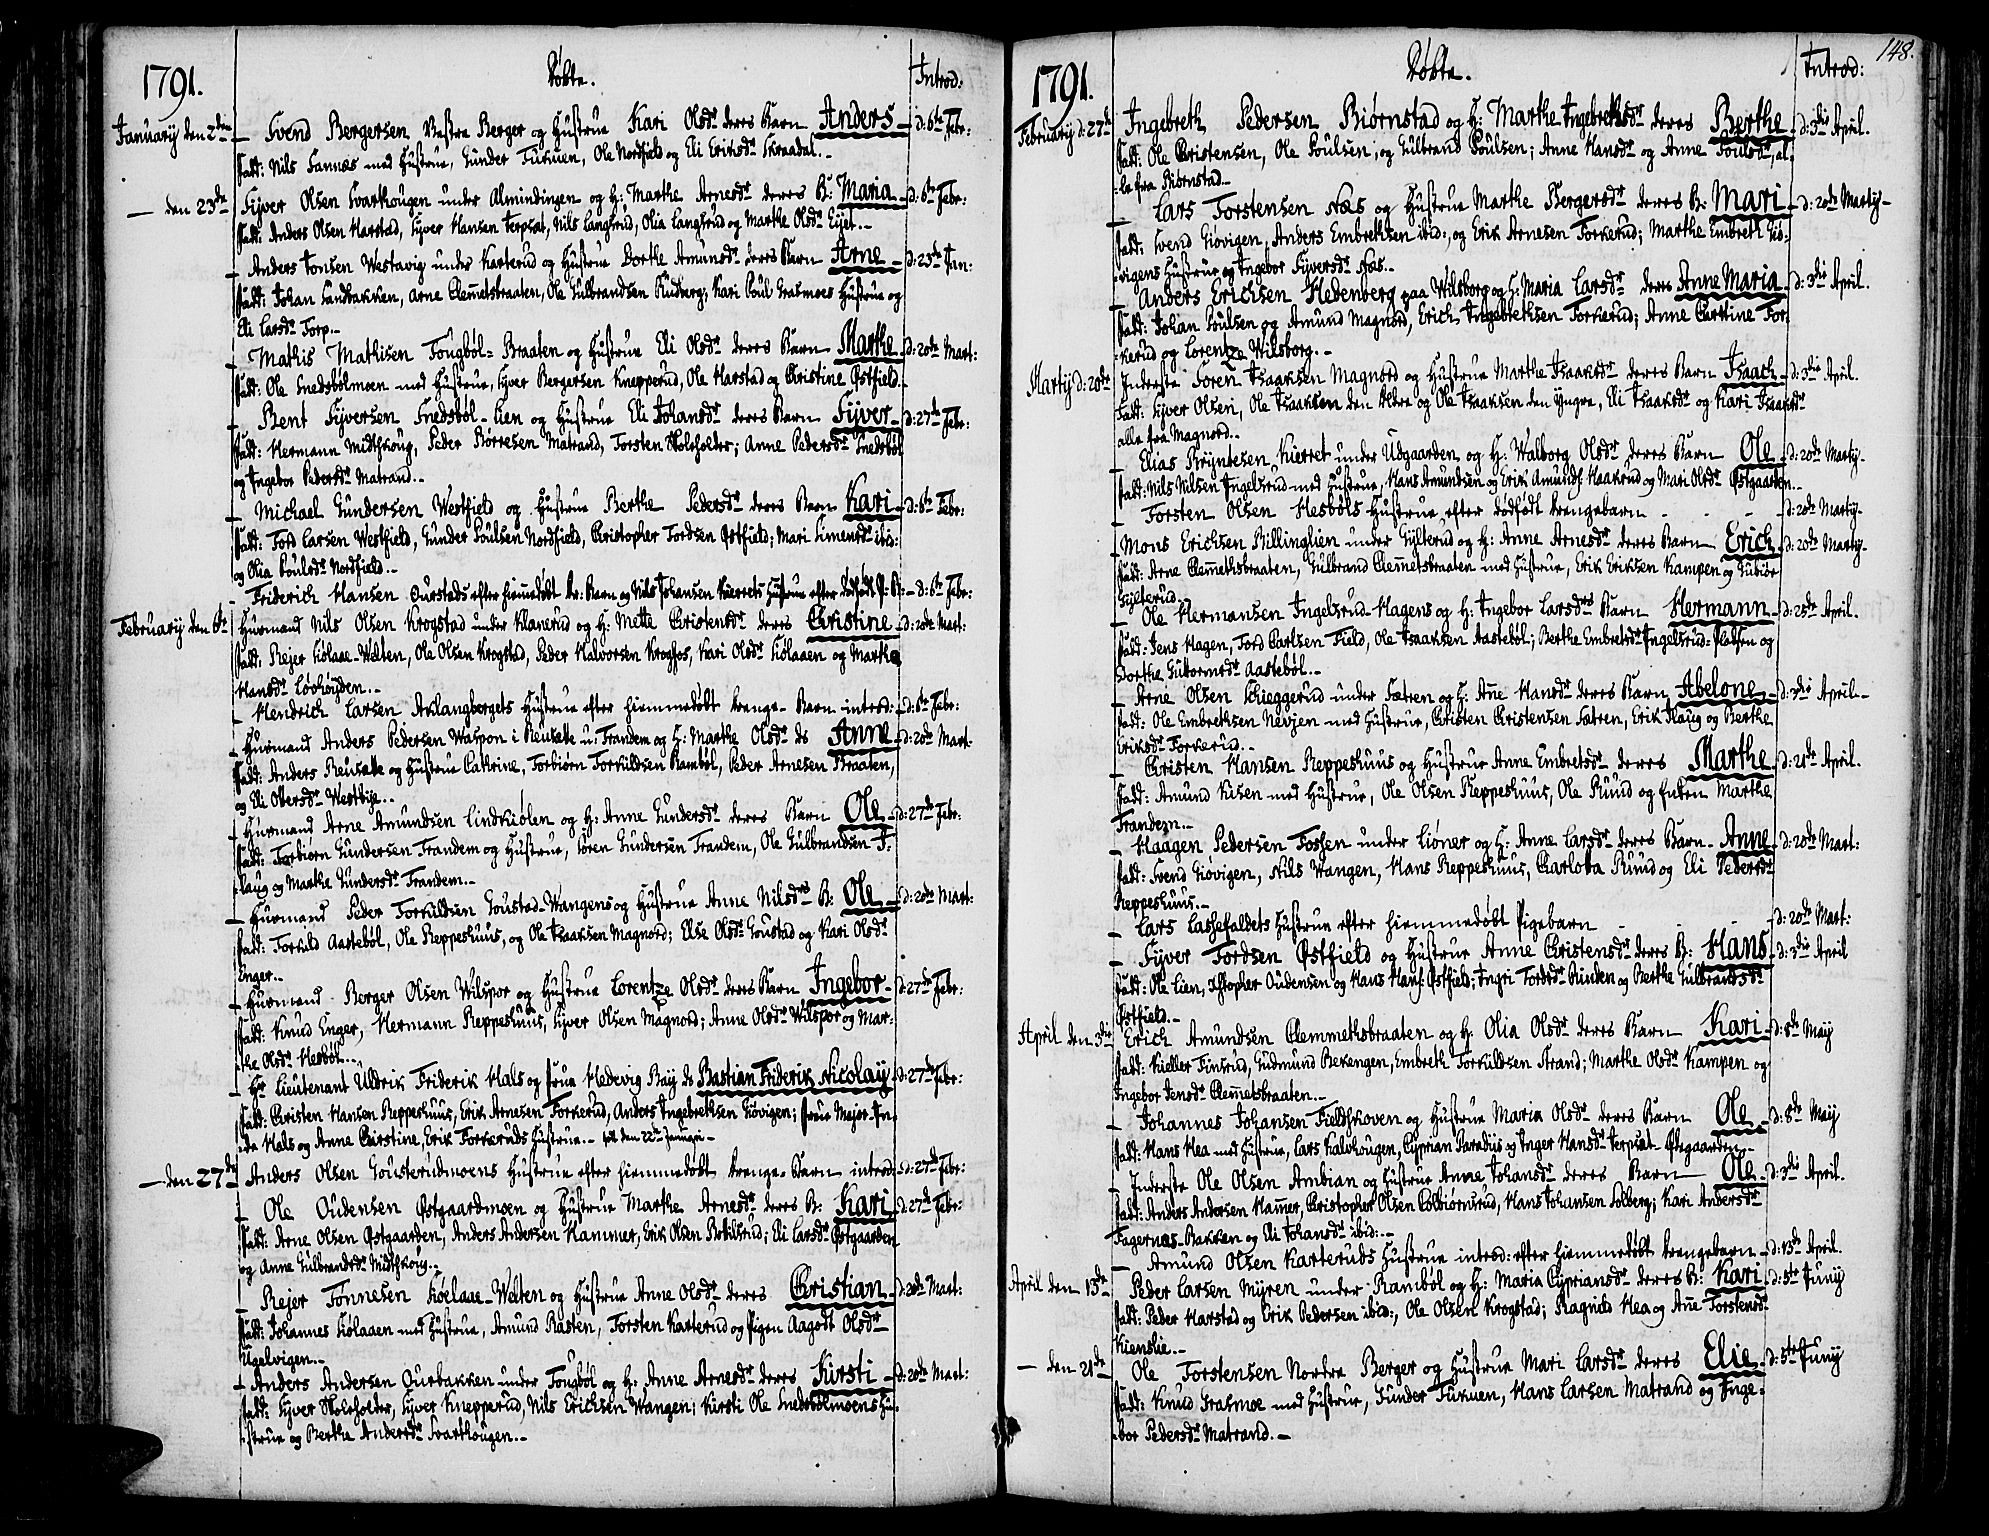 1791. Døbte. Introd:
January den 2den — Svend Bergersen Vestre Berger og Hustrue Kari Olsdr deres Barn Anders — d: 6te Febr:
fadd: Nils Sannæs med Hustrue, Gunder Tukuen, Ole Nordfield og Eli Eriksdr Skraadal. —
— den 23de Syver Olsen Svarthougen under Almindingen og H: Marthe Arnesdr deres B: Maria — d: 6te Febr:
fadd: Anders Olsen Harstad, Syver Hansen Terpsæt, Nils Langsrud, Olia Langsrud og Marthe Olsdr Eijet. —
— Anders Jonsen Westavig under Karterud og Hustrue Dorthe Amunsdr deres Barn Arne — d: 23de Jan:
fadd: Johan Sandbakken, Arne Clemetsbraaten, Ole Gulbrandsen Rudberg, Kari Poul Grasmoes Hustrue og
Eli Larsdr Torp. —
— Mathis Mathisen Tougbøl-Braaten og Hustrue Eli Olsdr deres Barn Marthe d: 20de Mart:
fadd: Ole Snedsbølmoen med Hustrue, Syver Bergersen Knepperud, Ole Harstad og Christine Østfield.
— Bent Syversen Snedsbøl-Lien og Hustrue Eli Johansdr deres Barn Syver — d: 27de Febr:
fadd: Hermann Midthkoug, Peder Børresen Matrand, Torsten Holeholder; Anne Pedersdr Snedsbøl
og Ingebor Pedersdr Matrand. —
— Michael Gundersen Westfield og Hustrue Berthe Pedersdr deres Barn Kari — d: 6te Febr:
fadd: Tord Larsen Westfield, Gunder Poulsen Nordfield, Christopher Tordsen Østfield; Mari Simensdr ibid:
og Olia Poulsdr Nordfield. —
— Friderich Hansen Ourstads efter hiemmedøbt Barn og Nils Johansen Kierrets Hustrue efter dødfødt P: B: — d: 6te Febr:
February den 6te Huusmand Nils Olsen Krogstad under Klanerud og H: Mette Christensdr deres Christine — d: 20de Mart:
fadd: Rejer Siølaae-Welten, Ole Olsen Krogstad, Peder Halvorsen Krogfos, Kari Olsdr Siølaaen og Marthe
Hansdr Løvhøyden. —
— Hendrich Larsen Aklangbergets Hustrue efter hiemmedøbt Drenge-Barn introd: — d: 6te Febr:
— Huusmand Anders Pedersen Waspon i Reusæte u: Trandem og H: Marthe Olsdr ds Anne — d: 20de Mart:
fadd: Anders Reusæte og Hustrue Cathrine, Torbiørn Torkildsen Rambøl, Peder Arnesen Braaten,
og Eli Olversdr Westbye. —
— Huusmand Arne Amundsen Lindkiølen og H: Anne Gundersdr deres Barn Ole — d: 27de Febr:
fadd: Torbiørn Gundersen Trandem og Hustrue, Søren Gundersen Trandem, Ole Gulbrandsen F-
laug og Marthe Gundersdr Trandem. —
— Huusmand Peder Torkildsen Goustad-Wangens og Hustrue Anne Nilsdrs B: Ole — d: 20de Mart:
fadd: Torkild Aastebøl, Ole Reppeshuus, og Ole Isaaksen Magnord; Else Olsdr Goustad og Kari Olsdr
Enger. —
— Huusmand Berger Olsen Wilspor og Hustrue Lorentze Olsdr deres Barn Ingebor — d: 27de Febr:
fadd: Knud Enger, Hermann Reppeshuus, Syver Olsen Magnord; Anne Olsdr Wilspor og Mar-
the Olsdr Hesbøl. —
— Hr Lieutenant Uldrik Friderik Hals og frue Hedevig Bay ds Bastian Friderik Nicolay — d: 27de Febr:
fadd: Christen Hansen Reppeshuus, Erik Arnesen Torkerud, Anders Ingebrethsen Giøvigen; frue Major In-
da Hals og Anne Christine, Erik Torkeruds Hustrue. — født den 22de Januari —
— den 27de Anders Olsen Gousterudmoens Hustrue efter hiemmedøbt Drenge-Barn introd: d: 27de Febr:
— Ole Oudensen Østgaardmoen og Hustrue Marthe Arnesdr deres B: Kari — d: 27de Febr:
fadd: Arne Olsen Østgaarden, Anders Andersen Hammer, Erik Olsen Botilsrud; Eli Larsdr Østgaarden
og Anne Gulbrandsdr Midthkoug. —
— Rejer Tønnesen Siøelaae-Welten og Hustrue Anne Olsdr deres Christian — d: 20de Mart:
fadd: Johannes Siølaaen med Hustrue, Amund Rasten, Torsten Karterud og Pigen Aagodt Olsdr
Ugelvigen. —
— Anders Andersen Ourbakken under Tougbøl og H: Anne Arnesdr deres Kirsti — d: 20de Mart:
fadd: Syver Holeholder, Syver Knepperud, Nils Erichsen Wangen; Kirsti Ole Snedsbølmoens Hu-
strue og Berthe Andersdr Svarthougen. —
148.
1791. Døbte. Introd:
February d: 27de Ingebreth Pedersen Biørnstad og H: Marthe Ingebrethsdr deres Berthe — d: 3die April.
fadd: Ole Christensen, Ole Poulsen, og Gulbrand Poulsen; Anne Hansdr og Anne Poulsdr, al-
le fra Biørnstad. —
— Lars Torstensen Næs og Hustrue Marthe Bergersdr deres B: Mari — d: 20de Martij —
fadd: Svend Giøvigen, Anders Embrethsen ibid:, og Erik Arnesen Torkerud; Marthe Embreth Giø-
vigens Hustrue og Ingebor Syversdr Næs. —
— Anders Erichsen Hedenberg paa Wilsborg og H: Maria Larsdr deres Anne Maria — d: 3die April.
fadd: Johan Poulsen og Amund Magnord, Erich Ingebrethsen Torkerud; Anne Christine Tor-
kerud og Lorentze Wilsborg. —
Martij d: 20de Inderste Søren Isaaksen Magnord og Hustrue Marthe Isaaksdr deres Barn Isaach — d: 3die April.
fadd: Syver Olsen, Ole Isaaksen den Ældre og Ole Isaaksen den yngre, Eli Isaaksdr og Kari Isaaksdr
alle fra Magnord. —
— Elias Bryntesen Kierret under Udgaarden og H: Walborg Olsdr deres Barn Ole — d: 20de Martij —
fadd: Nils Nilsen Ingelsrud med Hustrue, Hans Amundsen og Erik Amunds: Haakerud og Mari Olsdr Østgaarden. —
— Torsten Olsen Hesbøls Hustrue efter dødfødt Drengebarn — — — d: 20de Martij —
Mons Erichsen Billinglien under Gylterud og H: Anne Arnesdr deres Barn Erich — d: 20de Martij —
fadd: Arne Clemethsbraaten, Gulbrand Clemetsbraaten med Hustrue, Erik Eriksen Kampen og Gubiør
Gylterud. —
— Ole Hermansen Ingelsrud-Hagens og H: Ingebor Larsdrs Barn Hermann — d: 25de April.
fadd: Jens Hagen, Tord Carlsen Field, Ole Isaaksen Aastebøl; Berthe Embretsdr Ingelsrud-Pladsen og
Dorthe Guttormsdr Aastebøl. —
— Arne Olsen Skieggerud under Sætren og H: Anne Hansdr deres Barn Abelone — d: 3die April —
fadd: Ole Embrethsen Nevjen med Hustrue, Christen Christensen Sætren, Erik Flaug og Berthe
Eriksdr Torkerud. —
— Christen Hansen Reppeshuus og Hustrue Anne Embretsdr deres Marthe — d: 21de April.
fadd: Amund Lisen med Hustrue, Ole Olsen Reppeshuus, Ole Ruud og Enken Marthe
Trandem. —
— Haagen Pedersen Fossen under Liøner og H: Anne Larsdr deres Barn Anne — d: 20de Mart:
fadd: Svend Giøvigen, Nils Wangen, Hans Reppeshuus, Charlotta Ruud og Eli Pedersdr
Reppeshuus. —
— Lars Lassefaldets Hustrue efter hiemmedøbt Pigebarn — — d: 20de Mart:
— Syver Tordsen Østfield og Hustrue Anne Christensdr deres B: Hans — d: 3die April
fadd: Ole Lien, Chstopher Oudensen og Hans Hans: Østfield; Ingri Tordsdr Runden og Berthe Gulbrandsdr
Østfield. —
April den 3die Erich Amundsen Clemmethsbraaten og H: Olia Olsdr deres Barn Kari — d: 8de Maij
fadd: Kieller Finsrud, Gudmund Bekengen, Embreth Torkildsen Strand; Marthe Olsdr Kampen og
Ingebor Jensdr Clemetsbraaten. —
— Johannes Johansen Fieldskoven og Hustrue Maria Olsdr deres Barn Ole — d: 8de Maij
fadd: Hans Hea med Hustrue, Lars Kalvhougen, Cyprian Paradiis og Inger Hansdr Terpsæt-Ødegaarden —
— Inderste Ole Olsen Ambian og Hustrue Anne Johansdr deres Barn Ole — d: 3die April.
fadd: Anders Andersen Hammer, Christopher Olsen Colbiørnsrud, Hans Johansen Solberg; Kari Andersdr
Fagernæs-Bakken og Eli Johansdr ibid: —
— Amund Olsen Karteruds Hustrue introd: efter hiemmedøbt Drengebarn — d: 13de April.
April den 13de — Peder Larsen Myren under Rambøl og H: Maria Cypriansdr deres B: Kari — d: 5te Junij
fadd: Peder Harstad og Erik Pedersen ibid:, Ole Olsen Krogstad; Ragnild Hea og Anne Torstensdr
Kienslie. —
— den 21de Ole Torstensen Nordre Berger og Hustrue Mari Larsdr deres Elie — d: 5te Junij
fadd: Knud Grasmoe med Hustrue, Gunder Tukuen, Hans Larsen Matrand og Inge-
bor Pedersdr Matrand. —